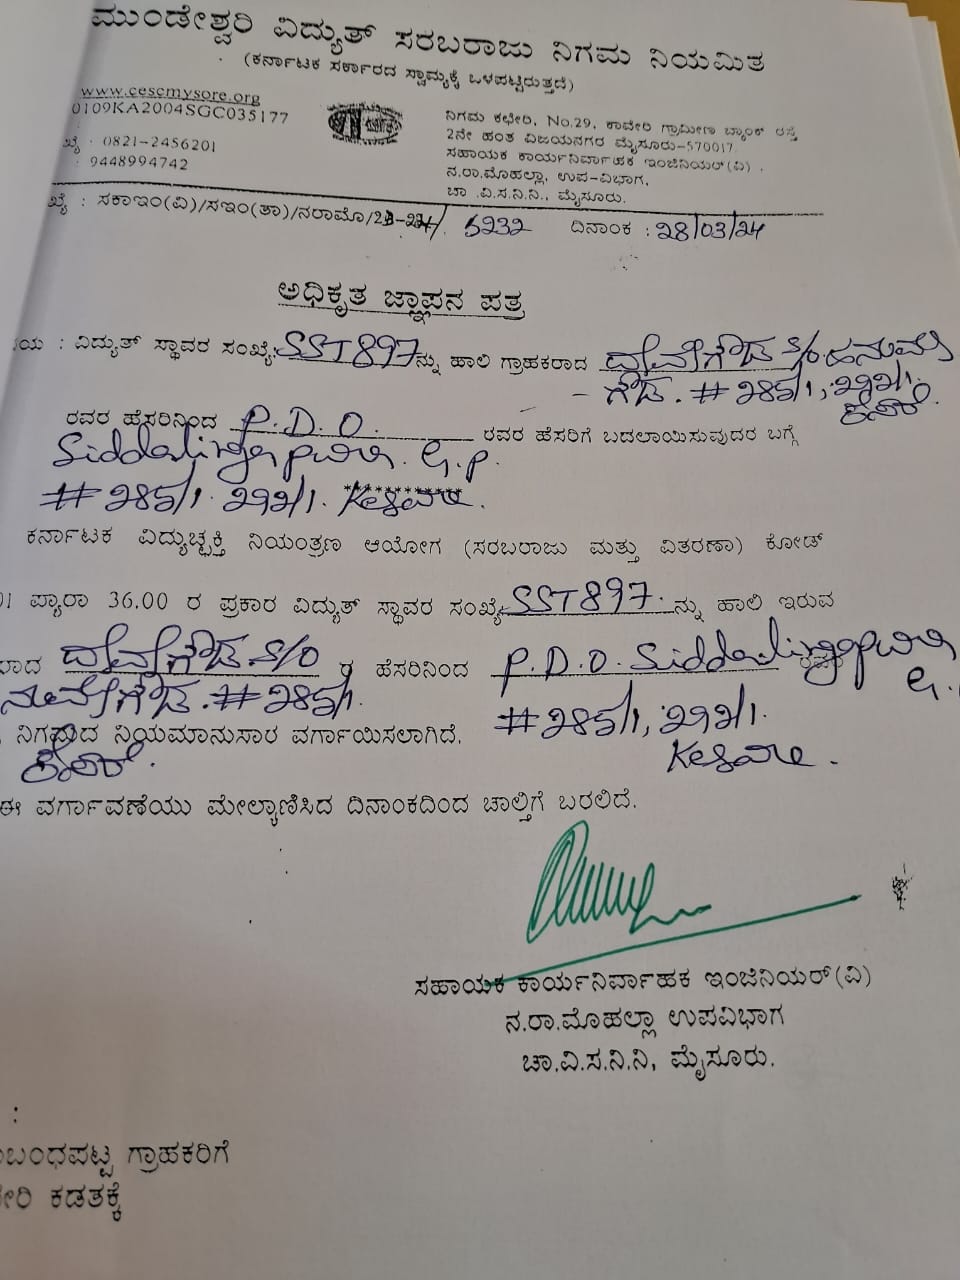 ಮುಂಡೇಶ್ವರಿ ವಿದ್ಯುತ್ ಸರಬರಾಜು ನಿಗಮ ನಿಯಮಿತ
(ಕರ್ನಾಟಕ ಸರ್ಕಾರದ ಸ್ವಾಮ್ಯಕ್ಕೆ ಒಳಪಟ್ಟಿರುತ್ತದೆ)
www.cescmysore.org
0109KA2004SGC035177
ಖ್ಯೆ : 0821-2456201
: 9448994742
ನಿಗಮ ಕಛೇರಿ, No.29, ಕಾವೇರಿ ಗ್ರಾಮೀಣ ಬ್ಯಾಂಕ್ ರಸ್ತೆ
2ನೇ ಹಂತ ವಿಜಯನಗರ ಮೈಸೂರು-570017.
ಸಹಾಯಕ ಕಾರ್ಯನಿರ್ವಾಹಕ ಇಂಜಿನಿಯರ್(ವಿ) .
ನ.ರಾ.ಮೊಹಲ್ಲಾ, ಉಪ-ವಿಭಾಗ,
ಚಾ .ವಿ.ಸ.ನಿ.ನಿ., ಮೈಸೂರು.
ಖ್ಯೆ : ಸಕಾಇಂ(ವಿ)/ಸಇಂ(ತಾ)/ನರಾಮೊ/23-24/ 5232 ದಿನಾಂಕ : 28/03/24
ಅಧಿಕೃತ ಜ್ಞಾಪನ ಪತ್ರ
ಯ : ವಿದ್ಯುತ್ ಸ್ಥಾವರ ಸಂಖ್ಯೆ: SST897 ನ್ನು ಹಾಲಿ ಗ್ರಾಹಕರಾದ ದಾಸೇಗೌಡ S/o. ಹನುಮ
ಗೌಡ. # 285/1, 292/1.
ಕೆಸರೆ.
ರವರ ಹೆಸರಿನಿಂದ P.D.O. ರವರ ಹೆಸರಿಗೆ ಬದಲಾಯಿಸುವುದರ ಬಗ್ಗೆ
Siddalingapura. G.P.
# 285/1. 292/1. Kesare.
**********
ಕರ್ನಾಟಕ ವಿದ್ಯುಚ್ಛಕ್ತಿ ನಿಯಂತ್ರಣ ಆಯೋಗ (ಸರಬರಾಜು ಮತ್ತು ವಿತರಣಾ) ಕೋಡ್
01 ಪ್ಯಾರಾ 36.00 ರ ಪ್ರಕಾರ ವಿದ್ಯುತ್ ಸ್ಥಾವರ ಸಂಖ್ಯೆ: SST897. ನ್ನು ಹಾಲಿ ಇರುವ
ರಾದ ದಾಸೇಗೌಡ S/O ರ ಹೆಸರಿನಿಂದ P.D.O. Siddalingapura ರವರ
G.
# 285/1. # 285/1, 292/1.
ನಿಗಮದ ನಿಯಮಾನುಸಾರ ವರ್ಗಾಯಿಸಲಾಗಿದೆ.
ಕೆಸರೆ. Kesare.
ಈ ವರ್ಗಾವಣೆಯು ಮೇಲ್ಕಾಣಿಸಿದ ದಿನಾಂಕದಿಂದ ಚಾಲ್ತಿಗೆ ಬರಲಿದೆ.
ಸಹಾಯಕ ಕಾರ್ಯನಿರ್ವಾಹಕ ಇಂಜಿನಿಯರ್(ವಿ)
ನ.ರಾ.ಮೊಹಲ್ಲಾ ಉಪವಿಭಾಗ
ಚಾ.ವಿ.ಸ.ನಿ.ನಿ, ಮೈಸೂರು.
:
ಬಂಧಪಟ್ಟ ಗ್ರಾಹಕರಿಗೆ
ೇರಿ ಕಡತಕ್ಕೆ